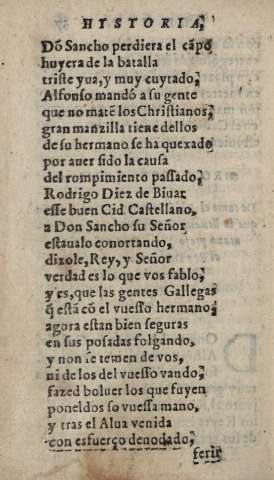 HYSTORIA,
Dõ Sancho perdiera el cãpo
huyera de la batalla
triste yua, y muy cuytado,
Alfonso mandó a su gente
que no matẽ los Christianos,
gran manzilla tiene dellos
de su hermano se ha quexado
por auer sido la causa
del rompimiento passado,
Rodrigo Diez de Biuar
esse buen Cid Castellano,
a Don Sancho su Señor
estaualo conortando,
dizole, Rey, y Señor
verdad es lo que vos fablo,
y es, que las gentes Gallegas
q̃ estã cõ el vuesso hermano,
agora estan bien seguras
en sus posadas folgando,
y non se temen de vos,
ni de los del vuesso vando,
fazed boluer los que fuyen
poneldos so vuessa mano,
y tras el Alua venida
con esfuerço denodado,
ferir